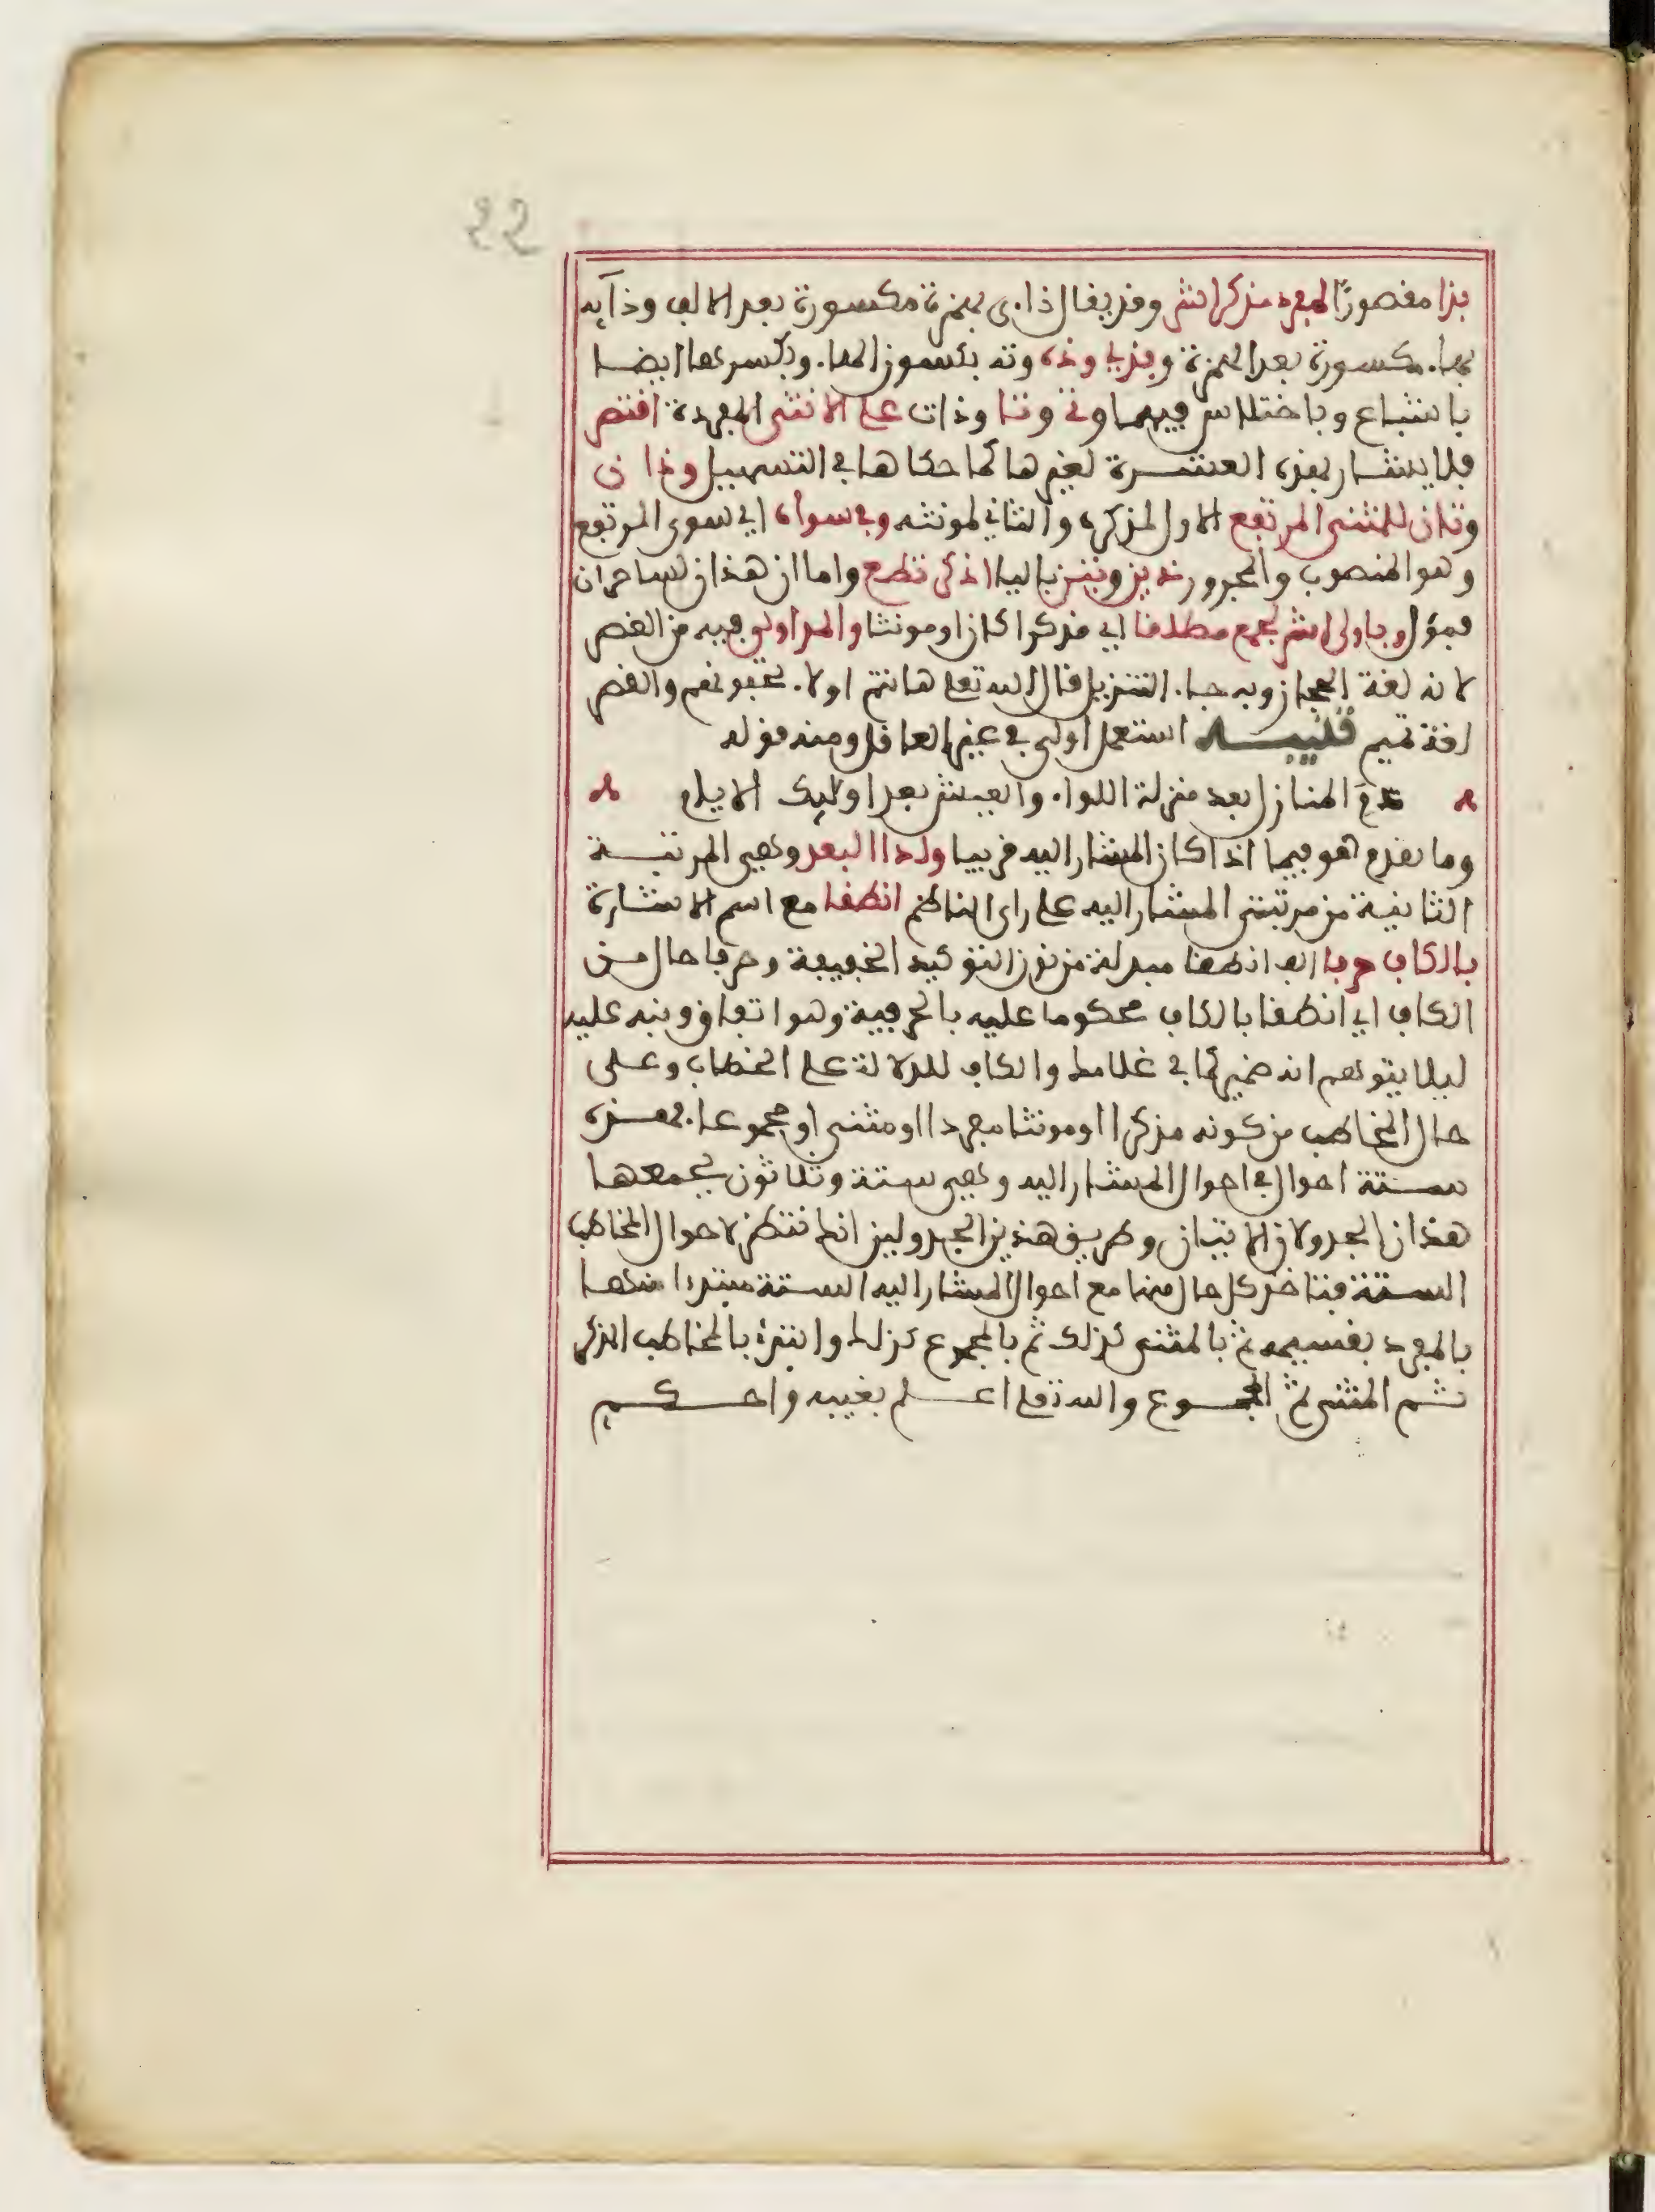 22
بذا مقصورًا لمفرد مذكر اشر وقد يقال ذاء ى بهمزة مكسورة بعد الالف وذآىه
بهاء مكسورة بعد الهمزة وبذى وذه وته بسكون الهاء وبكسرهما ايضا
باشباع وباختلاس فيهما وتى وتا وذات على الانثى المفردة اقتصر
فلا يشار بهذه العشرة لغيرها كما حكاها في التسهيل وذان
وتان للمثنى المرتفع الاول لمذكره والثاني لمونثه وفي سواه اي سوى المرتفع
وهو المنصوب والمجرور ذين وتين بالياء اذكر تطع واما ان هذان لساحران
فمؤل وباولى اشر لجمع مطلقا اي مذكرا كان او مونثا والمد اولى فيه من القصر
لانه لغة الحجاز وبه جاء التنزيل قال الله تعلى هانتم اولاء تحبونهم والقصر
لغة تميم تنبيه استعمل اولى في غير العاقل ومنه قوله
ذم المنازل بعد منزلة اللواء والعيش بعد اولئك الايام
وما تقدم هو فيما اذا كان المشار اليه قريبا ولدا البعد وهي المرتبة
الثانية من مرتبتي المشار اليه على راى الناظم انطقا مع اسم الاشارة
بالكاف حرفا الف انطقا مبدلة من نون التوكيد الخفيفة وحرفا حال من
الكاف اي انطقا بالكاف محكوما عليه بالحرفية وهو اتفاق ونبه عليه
ليلا يتوهم انه ضمير كما في غلامك والكاف للدلالة على الخطاب وعلى
حال المخاطب من كونه مذكرا او مونثا مفردا او مثنى او مجموعا فهذه
ستة احوال في احوال المشار اليه وهي ستة وثلاثون يجمعها
هذان الجدولان الاتيان وطريق هذين الجدولين انك تنظر لاحوال المخاطب
الستة فتاخذ كل حال منها مع احوال المشار اليه الستة مبتدءا منها
بالمفرد بقسيمه ثم بالمثنى كذلك ثم بالمجموع كذلك وابتدئ بالمخاطب المذكر
ثم المثنى ثم المجموع والله تعلى اعلم بغيبه واحكم